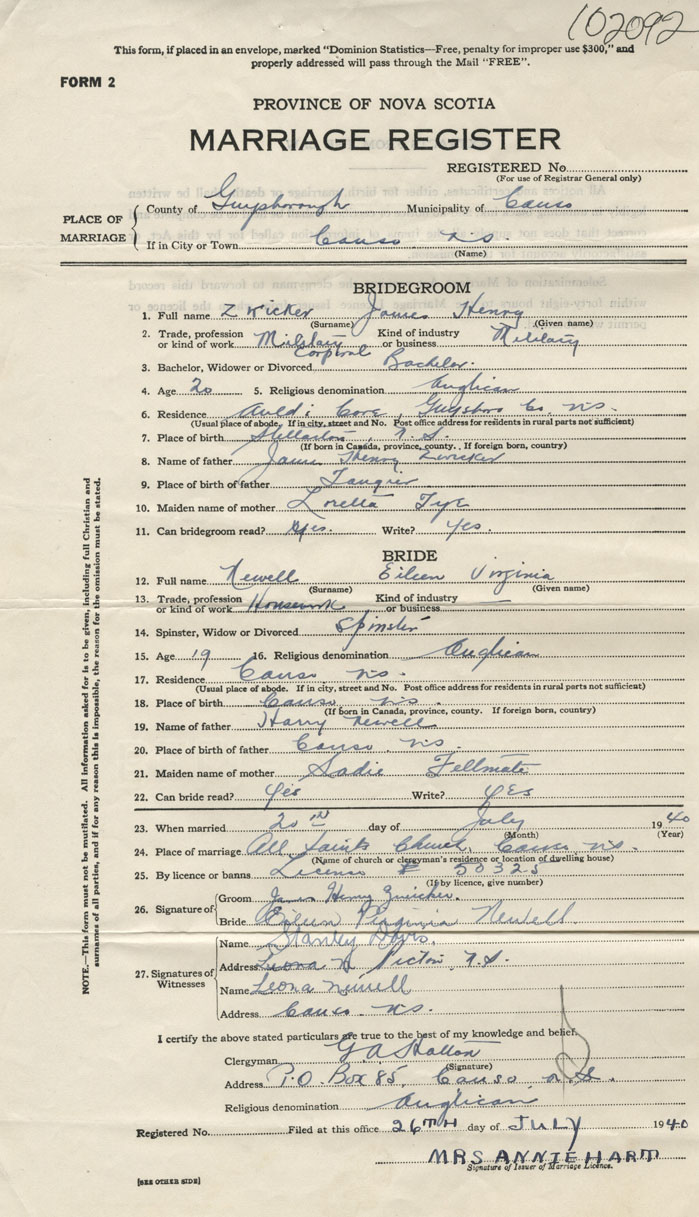 102092
This form, if placed in an envelope, marked "Dominion Statistics—Free, penalty for improper use $300," and
properly addressed will pass through the Mail "FREE".
FORM 2
PROVINCE OF NOVA SCOTIA
MARRIAGE REGISTER
REGISTERED No.
(For use of Registrar General only)
PLACE OF MARRIAGE
County of Guysborough Municipality of Canso
If in City or Town Canso N.S.
(Name)
BRIDEGROOM
1. Full name Zwicker James Henry
(Surname) (Given name)
2. Trade, profession or kind of work Military Corporal Kind of industry or business Military
3. Bachelor, Widower or Divorced Bachelor.
4. Age 20 5. Religious denomination Anglican
6. Residence Cove, Guysboro Co. N.S.
(Usual place of abode. If in city, street and No. Post office address for residents in rural parts not sufficient)
7. Place of birth Stellarton, N.S.
(If born in Canada, province, county. If foreign born, country)
8. Name of father James Henry Zwicker
9. Place of birth of father Tangier
10. Maiden name of mother Loretta Tye
11. Can bridegroom read? Yes. Write? Yes.
BRIDE
12. Full name Newell Eileen Virginia
(Surname) (Given name)
13. Trade, profession or kind of work Housework Kind of industry or business —
14. Spinster, Widow or Divorced Spinster
15. Age 19 16. Religious denomination Anglican
17. Residence Canso N.S.
(Usual place of abode. If in city, street and No. Post office address for residents in rural parts not sufficient)
18. Place of birth Canso N.S.
(If born in Canada, province, county. If foreign born, country)
19. Name of father Harry Newell
20. Place of birth of father Canso N.S.
21. Maiden name of mother Sadie Feltmate
22. Can bride read? Yes Write? Yes
23. When married 20th day of July 1940
(Month) (Year)
24. Place of marriage All Saints Church, Canso, N.S.
(Name of church or clergyman's residence or location of dwelling house)
25. By licence or banns License # 50325
(If by licence, give number)
26. Signature of
Groom James Henry Zwicker.
Bride Eileen Virginia Newell
27. Signatures of Witnesses
Name Stanley
Address Leona N Pictou, N.S.
Name Leona Newell
Address Canso N.S.
I certify the above stated particulars are true to the best of my knowledge and belief.
Clergyman G A
(Signature)
Address P.O. Box 85, Canso, N.S.
Religious denomination Anglican
Registered No. Filed at this office 26TH day of JULY 1940
MRS ANNIE HART
Signature of Issuer of Marriage Licence.
[SEE OTHER SIDE]
NOTE.—This form must not be mutilated. All information asked for is to be given, including full Christian and
surnames of all parties, and if for any reason this is impossible, the reason for the omission must be stated.